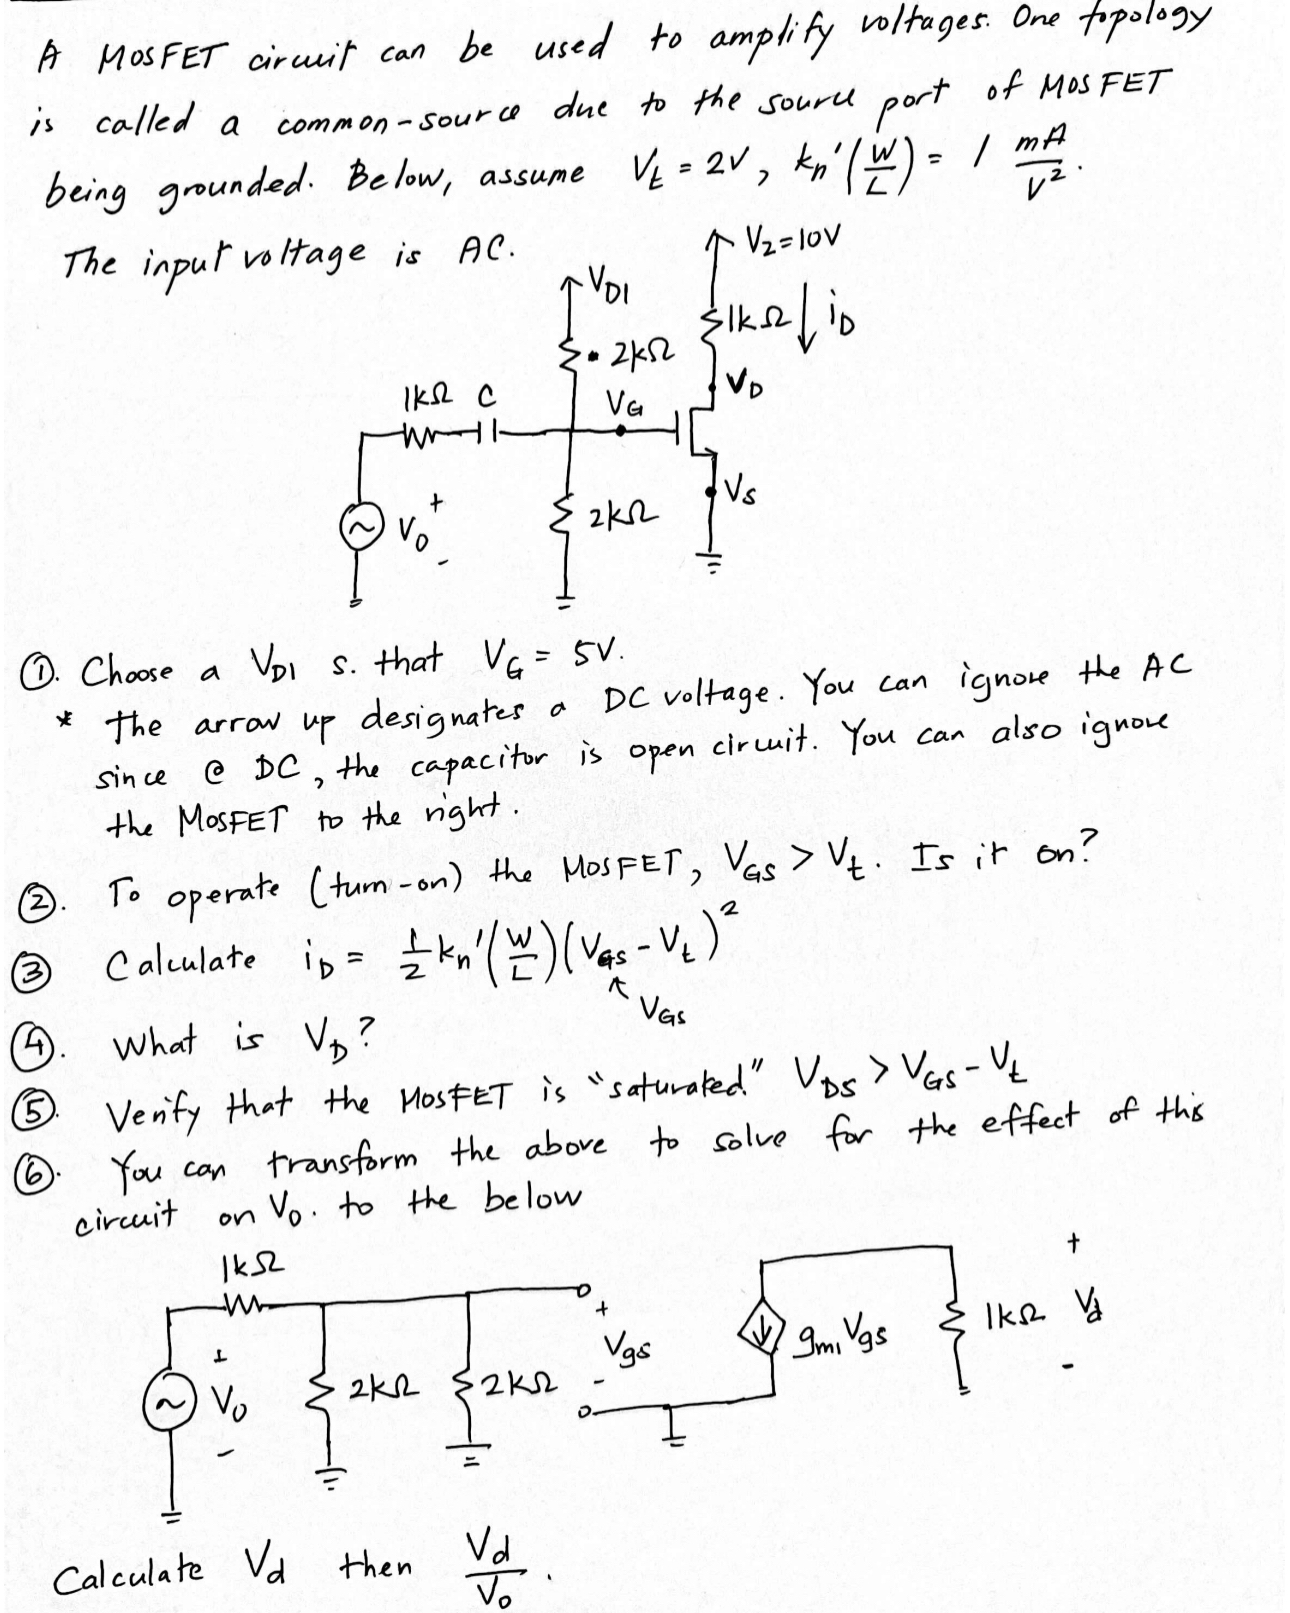 A MOSFET circuit can be used to amplify voltages. One topology
is called a common-source due to the source port of MOSFET
being grounded. Below, assume Vt = 2V, kn'(W/L) = 1 mA/V².
The input voltage is AC.
V2=10V
VD1
1kΩ iD
2kΩ
VD
1kΩ C
VG
Vs
+
Vo
-
2kΩ
①. Choose a VD1 s. that VG = 5V.
* the arrow up designates a DC voltage. You can ignore the AC
since @ DC, the capacitor is open circuit. You can also ignore
the MOSFET to the right.
②. To operate (turn-on) the MOSFET, VGS > Vt. Is it on?
③ Calculate iD = 1/2 kn'(W/L)(VGS - Vt)²
VGS
④. What is VD?
⑤. Verify that the MOSFET is "saturated." VDS > VGS - Vt
⑥. You can transform the above to solve for the effect of this
circuit on Vo. to the below
1kΩ
+
Vo
-
2kΩ
2kΩ
+
Vgs
-
gm1 Vgs
1kΩ
+
Vd
-
Calculate Vd then Vd/Vo.